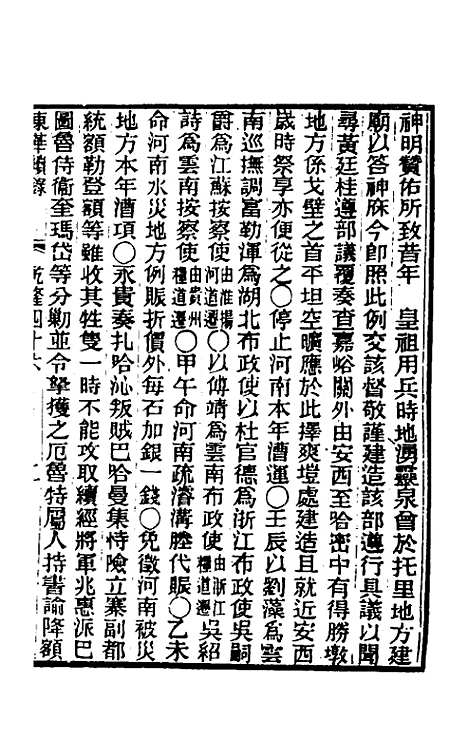 神明贊佑所致昔年　皇祖用兵時地湧靈泉曾於托里地方建
廟以答神庥今卽照此例交該督敬謹建造該部遵行具議以聞
尋黃廷桂遵部議覆奏查嘉峪關外由安西至哈密中有得勝墩
地方係戈壁之首平坦空曠應於此擇爽塏處建造且就近安西
歲時祭享亦便從之〇停止河南本年漕運〇壬辰以劉藻爲雲
南巡撫調富勒渾爲湖北布政使以杜官德爲浙江布政使吳嗣
爵爲江蘇按察使由淮揚河道遷〇以傅靖爲雲南布政使由浙江糧道遷吳紹
詩爲雲南按察使由貴州糧道遷〇甲午命河南疏濬溝塍代賑〇乙未
命河南水災地方例賑折價外每石加銀一錢〇免徵河南被災
地方本年漕項〇永貴奏扎哈沁叛賊巴哈曼集恃險立寨副都
統額勒登額等雖收其牲隻一時不能攻取續經將軍兆惠派巴
圖魯侍衛奎瑪岱等分勦並令拏獲之厄魯特屬人持書諭降額
東華續錄　乾隆四十六